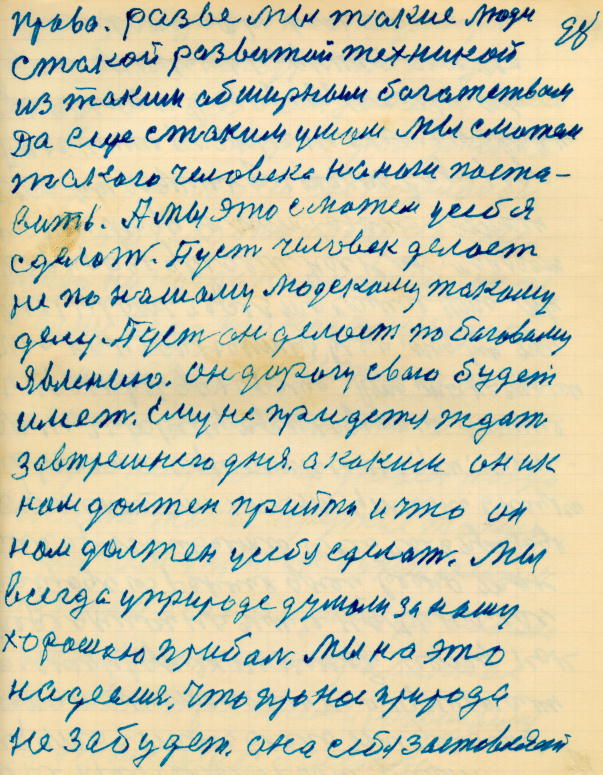 права. разве мы такие люди
98
стакой развитой техникой
из таким абширным богатствам
Да еще стаким умом мы сможем
такого человека наноги поста-
вить. А мы это сможем усебя
сделат. Пуст человек делает
не по нашаму людскому такому
делу. Пуст он делает по баговаму
явлению. он дорогу сваю будет
имет. Ему не придется ждат
завтрешнего дня. а каким он ик
нам должен прийти и что он
нам должен усебя сделат. Мы
всегда уприроде думали за нашу
хорошаю прибал. Мы на это
надеемя. что про нас природа
не забудет. она себя заставляет